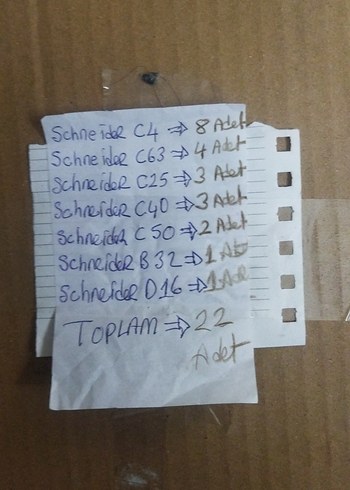 Schneider C4 ⇒ 8 Adet
Schneider C63 ⇒ 4 Adet
Schneider C25 ⇒ 3 Adet
Schneider C40 ⇒ 3 Adet
Schneider C50 ⇒ 2 Adet
Schneider B32 ⇒ 1 Ad
Schneider D16 ⇒ 1 Ade
TOPLAM ⇒ 22
Adet